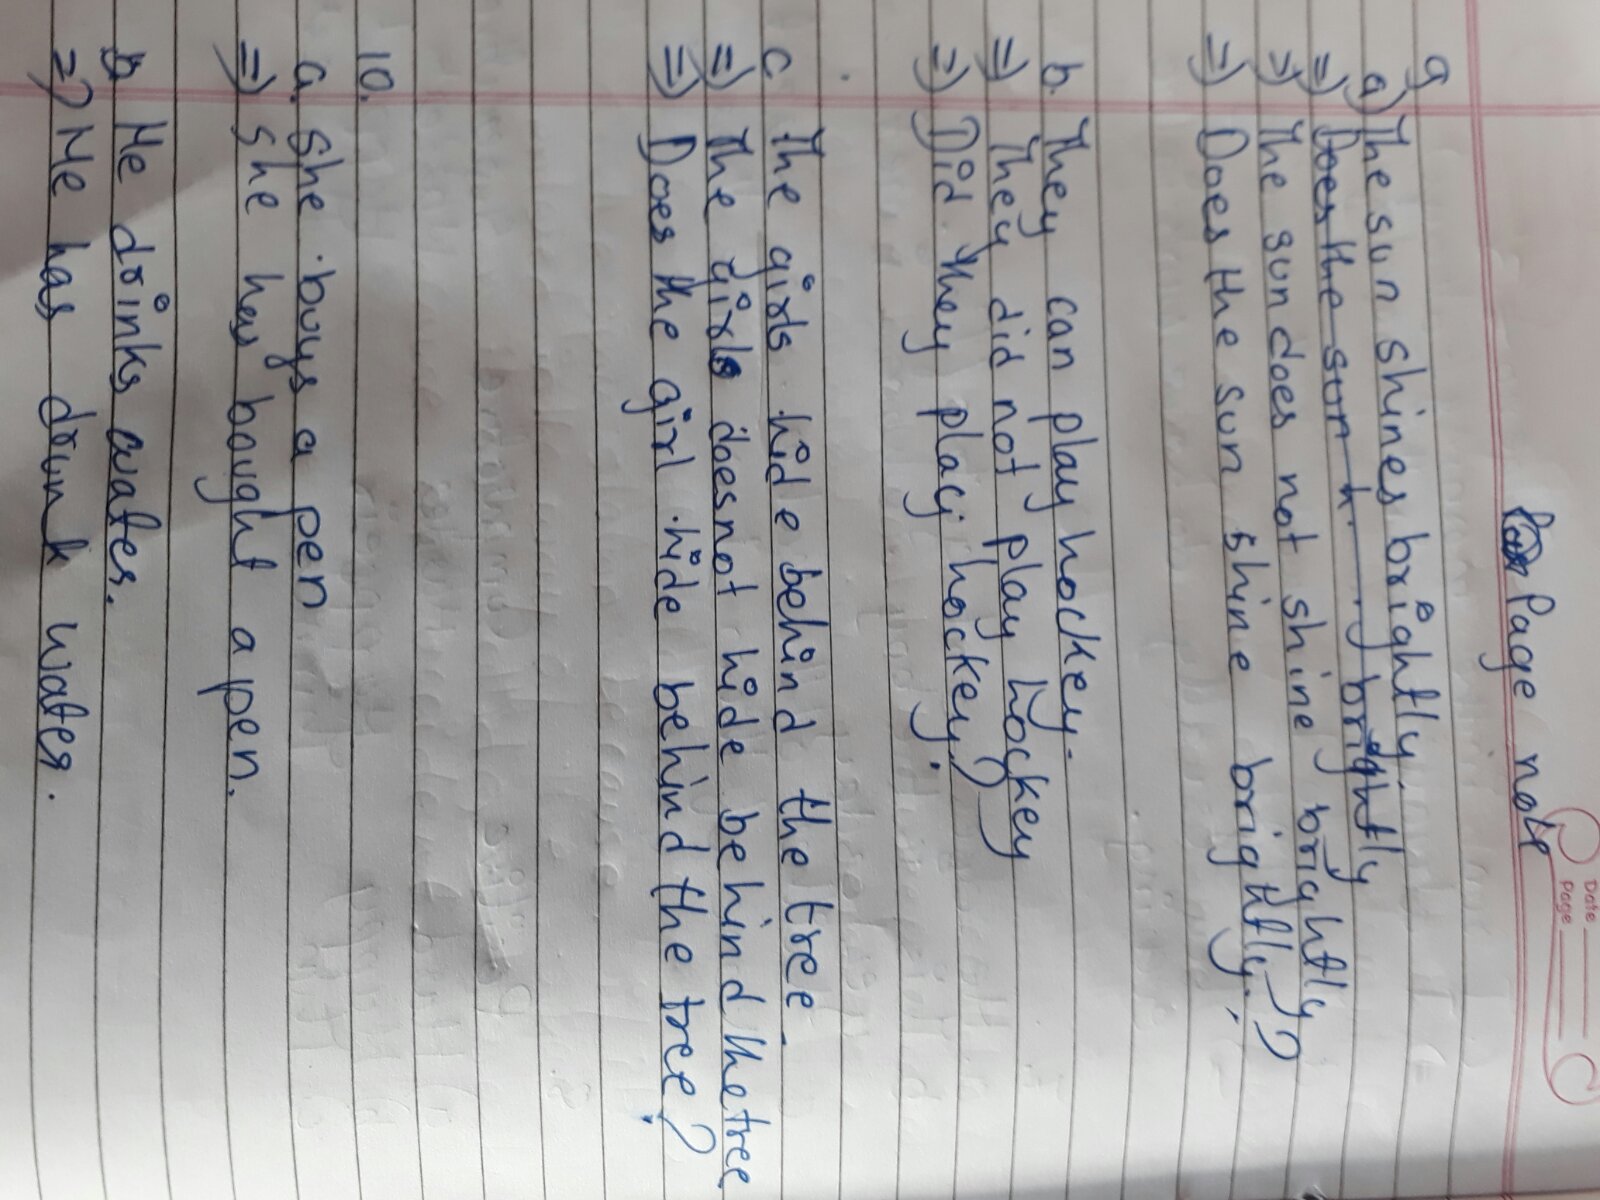 Page no
Date
Page
9
a) The sun shines brightly.
=) Does the sun h.... brightly
=) The sun does not shine brightly
=) Does the sun shine brightly?
b. They can play hockey.
=) They did not play hockey
=) Did they play hockey?
c. The girls hide behind the tree.
=) The girls doesnot hide behind the tree
=) Does the girl hide behind the tree?
10.
a. She buys a pen
=) She has bought a pen.
b He drinks water.
=) He has drunk water.